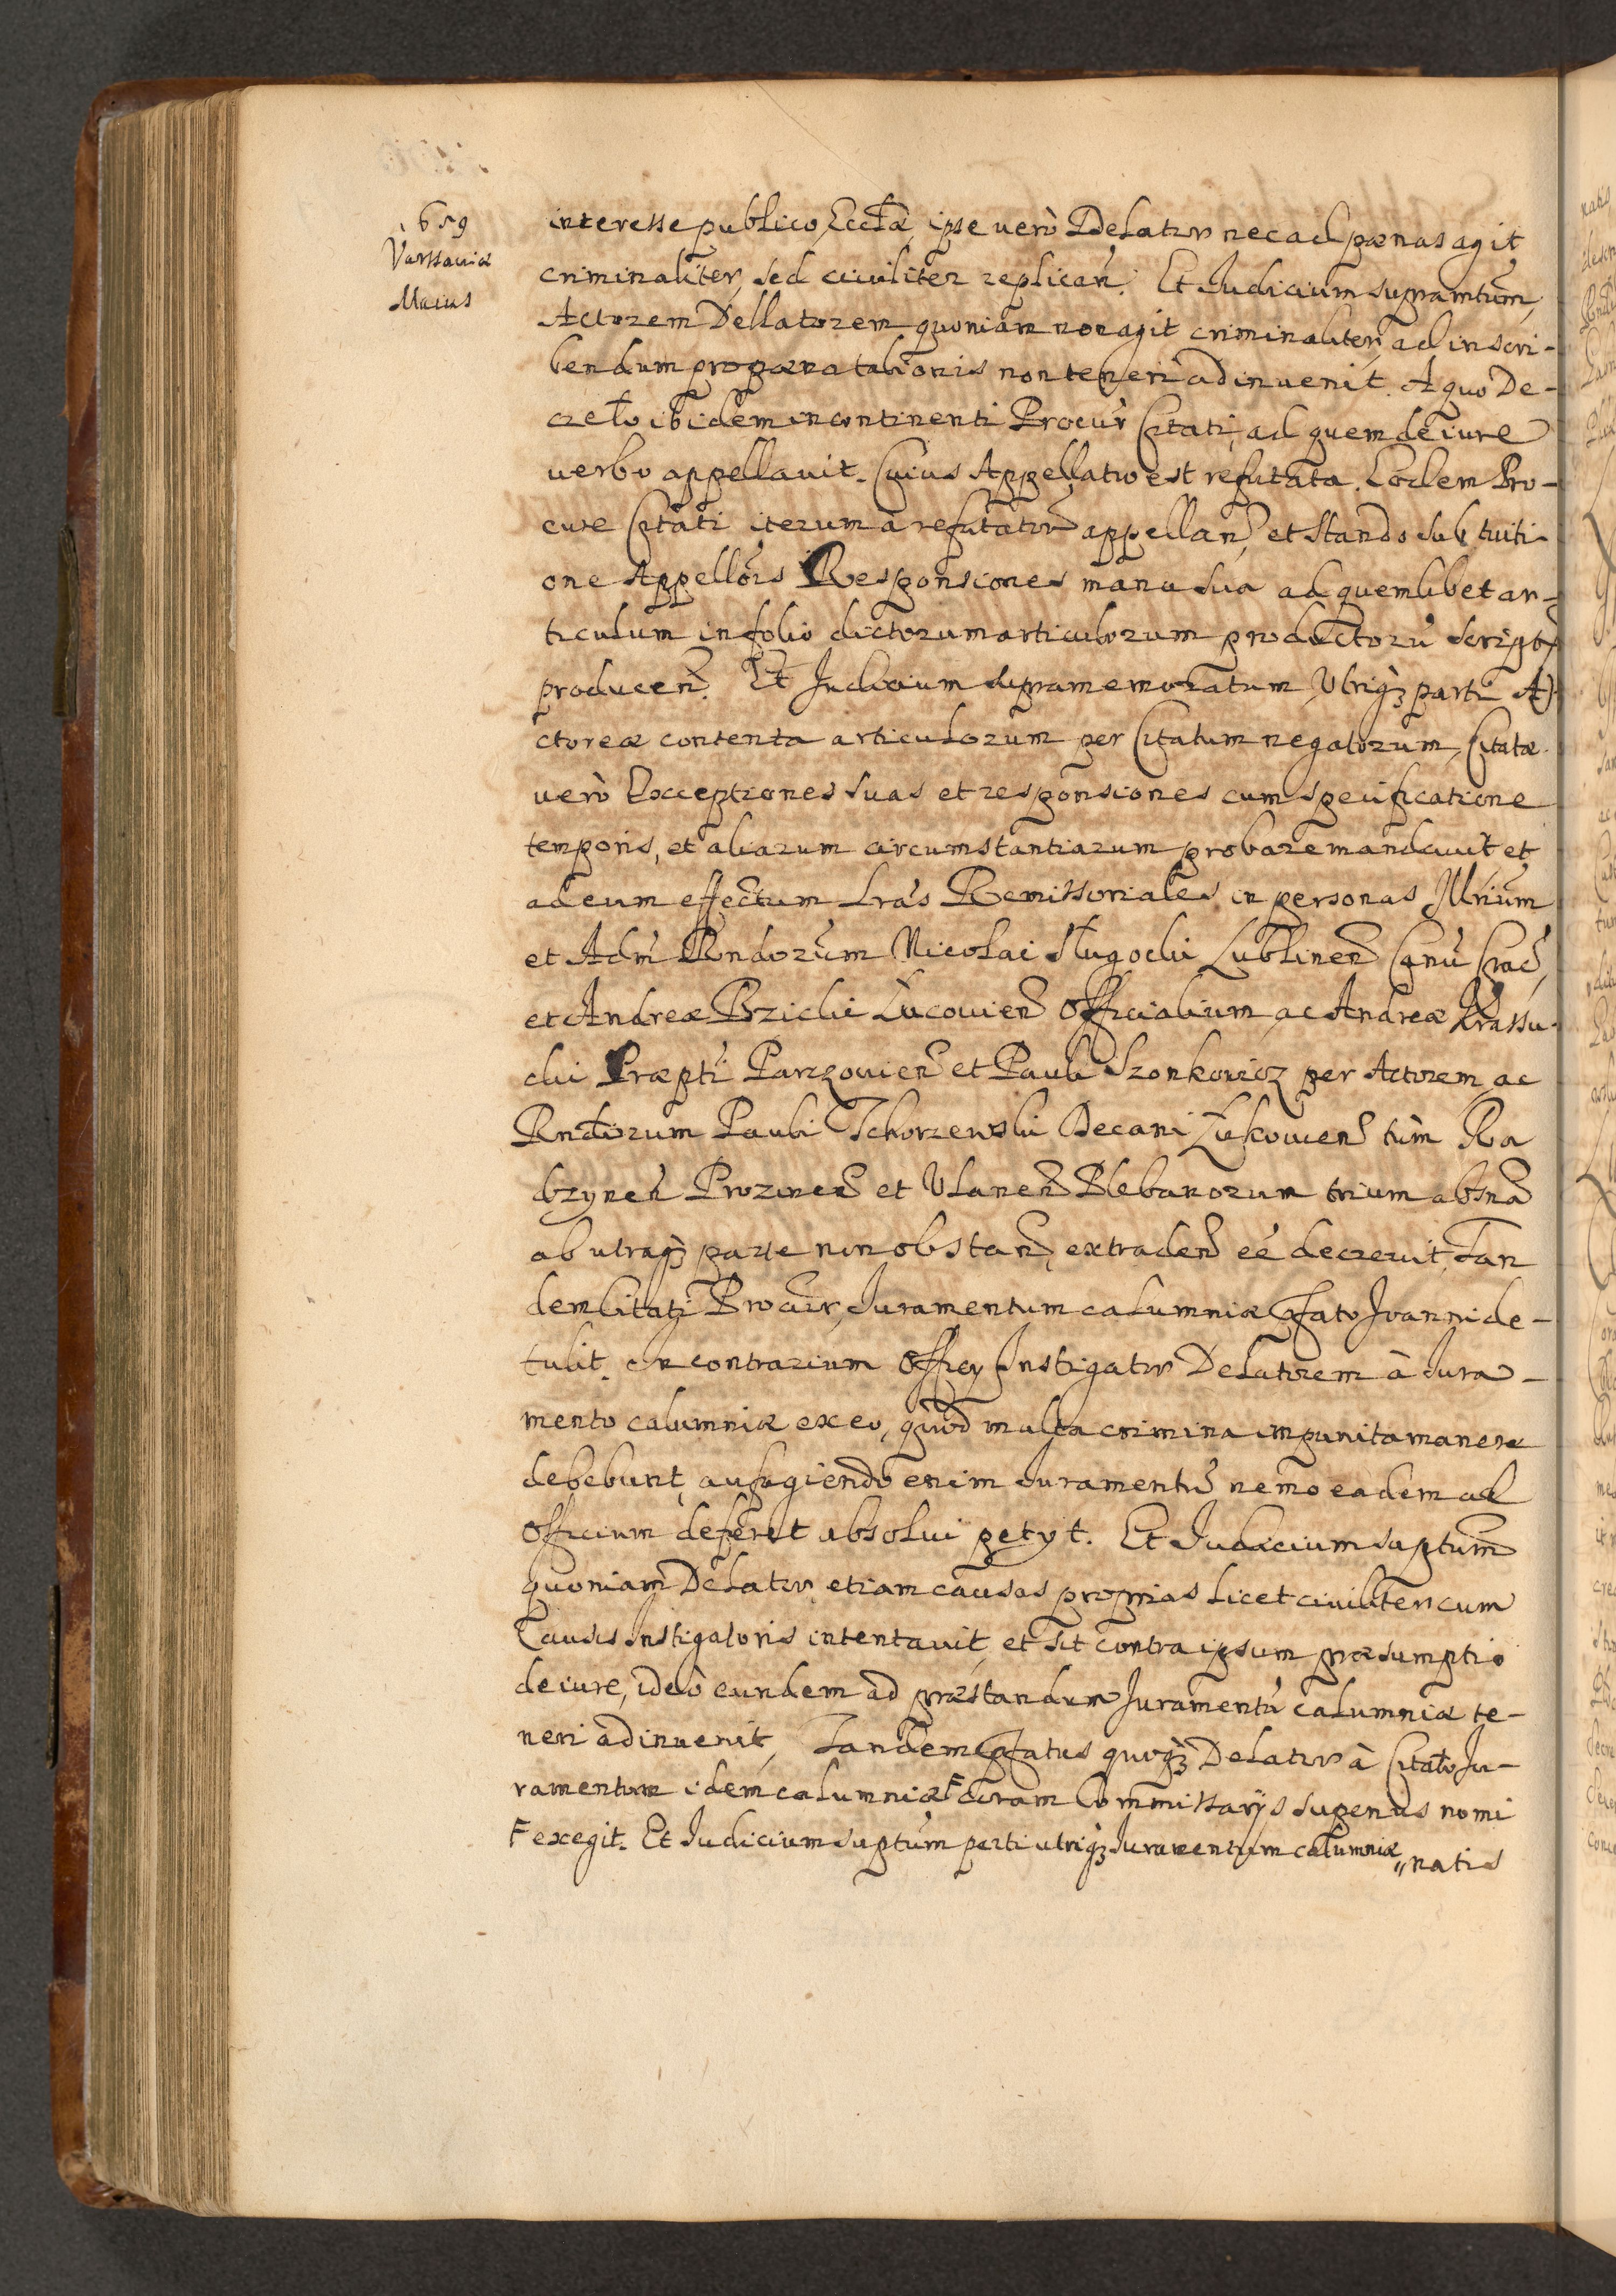 1659
Varssaviæ
Maius
interesse publico, Eccl̃a, ipse verò Delator nec ad pænas agit
criminaliter, sed civiliter replicañ. Et Judicium supramtũm,
Actorem Dellatorem quoniam non agit criminaliter, ad inscri-
bendum pro pæna talionis non teneri adinvenit. A quo De-
creto ibidem incontinenti Procur̃ Citati, ad quem de iure
verbo appellavit. Cuius Appellatio est refutata. Eodem Pro-
cure Citati iterum à refutator̃ appellañ, et stando sub tuiti-
one Appellõis Responsiones manu sua ad quemlibet ar-
ticulum in folio dictorum articulorum productorũ scriptas
produceñ. Et Judicium supramemoratum, Utriqȝ parti A-
ctoreæ contenta articulorum per Citatum negatorum, Citatæ
verò Exceptiones suas et responsiones cum specificatione
temporis, et aliarum circumstantiarum probare mandavit et
ad eum effectum Lrãs Remissoriales in personas Illrium
et Adm̃ Rndorum Nicolai Sługocki Lublineñ Canũ Crac̃,
et Andreæ Brzicki Lucovieñ Officialium, ac Andreæ Krassu-
cki Præpti Parczovieñ et Pauli Szonkowicz per Actorem, ac
Rndorum Pauli Tchorzewski Decani Łukovieñ tùm Ra
dzyneñ Prozineñ et Ulaneñ Plebanorum trium absña
ab utraqȝ parte non obstañ, extradeñ eẽ decrevit, Tan
dem Citati Procur̃, Juramentum calumniæ pfato Joanni de-
tulit. In contrarium Officij Instigator Delatorem à Jura-
mento calumniæ ex eo, quòd multa crimina impunita manere
debebunt, aufugiendo enim Juramentũ nemo eadem ad
Officium deferet absolui petijt. Et Judicium suptũm
quoniam Delator, etiam causas proprias licet civiliter cum
Causis Instigatoris intentavit, et sit contra ipsum præsumptio
de iure, ideò eundem ad præstandum Juramentũ calumniæ te-
neri adinvenit, Tandem pfatus quoqȝ Delator à Citato Ju-
ramentum idem calumniæ F coram Commissarijs superius nomi
F exegit. Et Judicium suptum parti utriqȝ Juramentum calumniæ
"natis